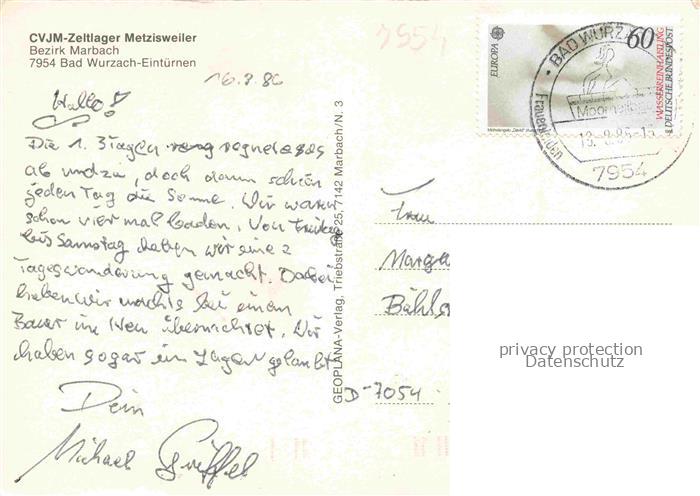 CVJM-Zeltlager Metzisweiler
Bezirk Marbach
7954 Bad Wurzach-Eintürnen
7954
16.8.86
Hallo!
Die 1. 3 Tagen regnete es
ab und zu, doch dann schien
jeden Tag die Sonne. Wir waren
schon vier mal baden. Von Freitag
bis Samstag haben wir eine 2
Tageswanderung gemacht. Dabei
haben wir nachts bei einem
Bauer im Heu übernachtet. Wir
haben sogar ein Lager gelaubt
Dein
Michael Griffel
GEOPLANA-Verlag, Triebstraße 25, 7142 Marbach/N. 3
EUROPA
60
WASSERREINHALTUNG
DEUTSCHE BUNDESPOST
BAD WURZA
Moorheilbad
Frauenleiden
18.8.86-15
7954
Frau
Marga
Bühls
D-7054
privacy protection
Datenschutz